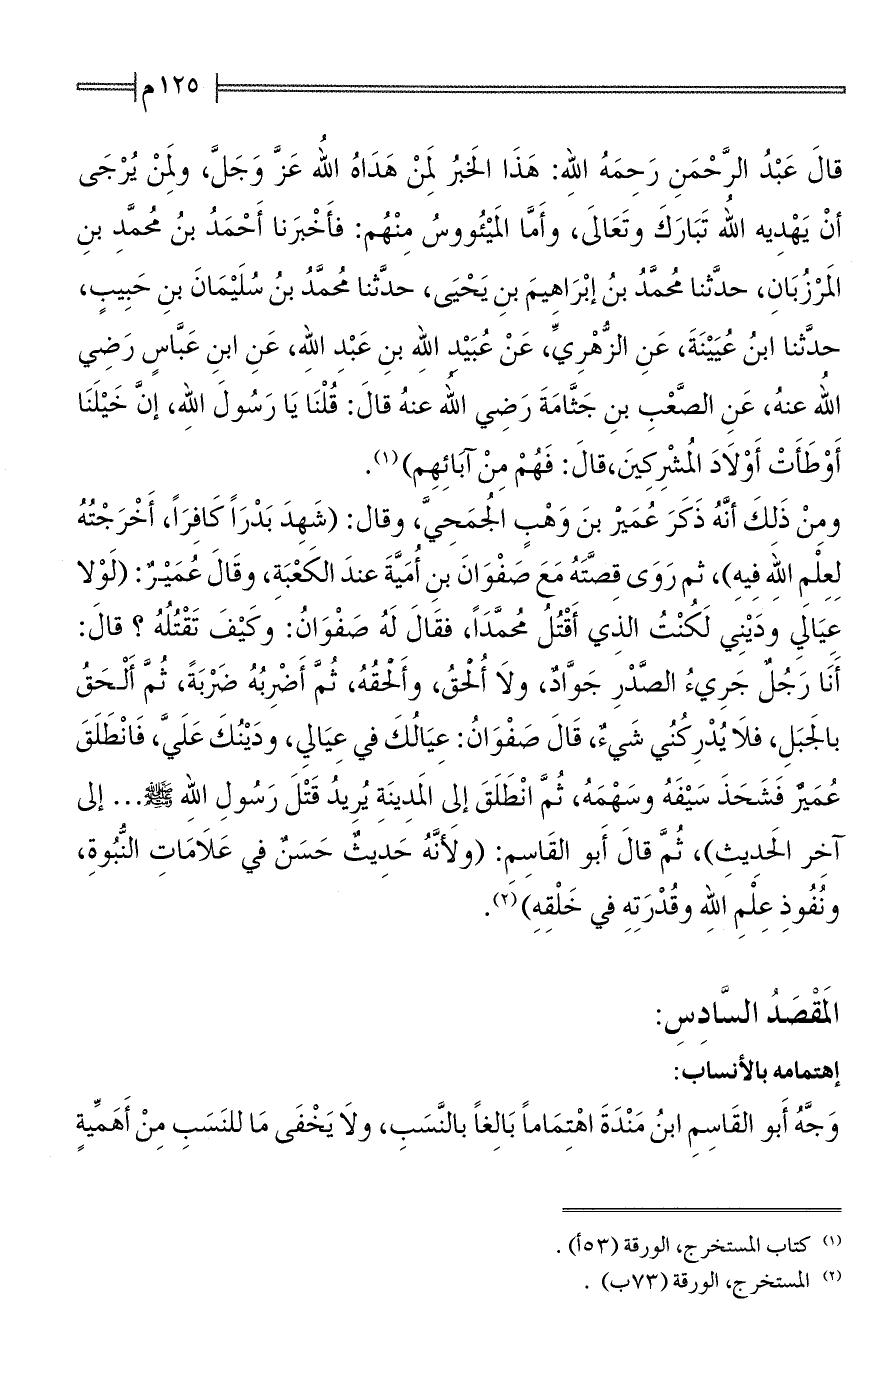 ١٢٥م
قالَ عَبْدُ الرَّحْمَنِ رَحِمَهُ اللهِ: هَذَا الخَبرُ لمَنْ هَدَاهُ اللهُ عَزَّ وَجَلَّ، ولمَنْ يُرْجَى
أنْ يَهْدِيه اللهُ تَبَارَكَ وتَعَالَى، وأمَّا المَيْئُووسُ مِنْهُم: فأَخْبَرَنا أَحْمَدُ بنُ مُحمَّدِ بنِ
المَرْزُبَانِ، حدَّثنا مُحمَّدُ بنُ إبْرَاهِيمَ بنِ يَحْيَى، حدَّثنا مُحمَّدُ بنُ سُلَيْمَانَ بنِ حَبِيبٍ،
حدَّثنا ابنُ عُيَيْنَةَ، عَنِ الزُّهْرِيِّ، عَنْ عُبَيْدِ اللهِ بنِ عَبْدِ اللهِ، عَنِ ابنِ عَبَّاسٍ رَضِي
اللهُ عنهُ، عَنِ الصَّعْبِ بنِ جَثَّامَةَ رَضِي اللهُ عنهُ قالَ: قُلْنَا يَا رَسُولَ اللهِ، إنَّ خَيْلَنَا
أَوْطَأَتْ أَوْلَادَ المُشْرِكِينَ،قالَ: فَهُمْ مِنْ آبَائِهِم)(١).
ومِنْ ذَلِكَ أنَّهُ ذَكَرَ عُمَيرْ بنَ وَهْبٍ الجُمَحِيَّ، وقال: (شَهِدَ بَدْرَاً كَافِرَاً، أَخْرَجْتُهُ
لِعِلْمِ اللهِ فِيهِ)، ثم رَوَى قِصَّتَهُ مَعَ صَفْوَانَ بنِ أُمَيَّةَ عندَ الكَعْبَةِ، وقالَ عُمَيْرٌ: (لَوْلا
عِيَالَي ودَيْنِي لَكُنْتُ الذي أَقْتُلُ مُحمَّدَاً، فقالَ لَهُ صَفْوَانُ: وكَيْفَ تَقْتُلُهُ ؟ قالَ:
أَنَا رَجُلٌ جَرِيءُ الصَّدْرِ جَوَّادٌ، ولاَ أُلْحَقُ، وأَلْحَقُهُ، ثُمَّ أَضْرِبُهُ ضَرْبَةً، ثُمَّ أَلْحَقُ
بالجَبَلِ، فلاَ يُدْرِكُنُي شَيءٌ، قَالَ صَفْوَانُ: عِيَالُكَ في عِيَالِي، ودَيْنُكَ عَلَيَّ، فَانْطَلَقَ
عُمَيرٌ فَشَحَذَ سَيْفَهُ وسَهْمَهُ، ثُمَّ انْطَلَقَ إلى المَدِينَةِ يُرِيدُ قَتْلَ رَسُولِ اللهِ ﷺ... إلى
آخرِ الحَدِيثِ)، ثُمَّ قالَ أبو القَاسِمِ: (ولأَنَّهُ حَدِيثٌ حَسَنٌ في عَلَامَاتِ النُّبُوةِ،
ونُفُوذِ عِلْمِ اللهِ وقُدْرَتِهِ في خَلْقِهِ)(٢).
المَقْصَدُ السَّادِسِ:
إهتمامه بالأنساب:
وَجَّهُ أبو القَاسِمِ ابنُ مَنْدَةَ اهْتِمَاماً بَالِغاً بالنَّسَبِ، ولاَ يَخْفَى مَا للنَسَبِ مِنْ أَهمِّيةٍ
(١) كتاب المستخرج، الورقة (٥٣أ) .
(٢) المستخرج، الورقة (٧٣ب) .